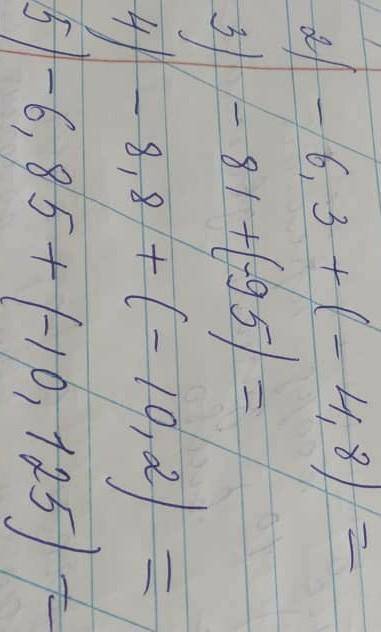 2) - 6,3 + (- 4,8) =
3) - 81 + (-95) =
4) - 8,8 + (- 10,2) =
5) - 6,85 + (-10,125) =